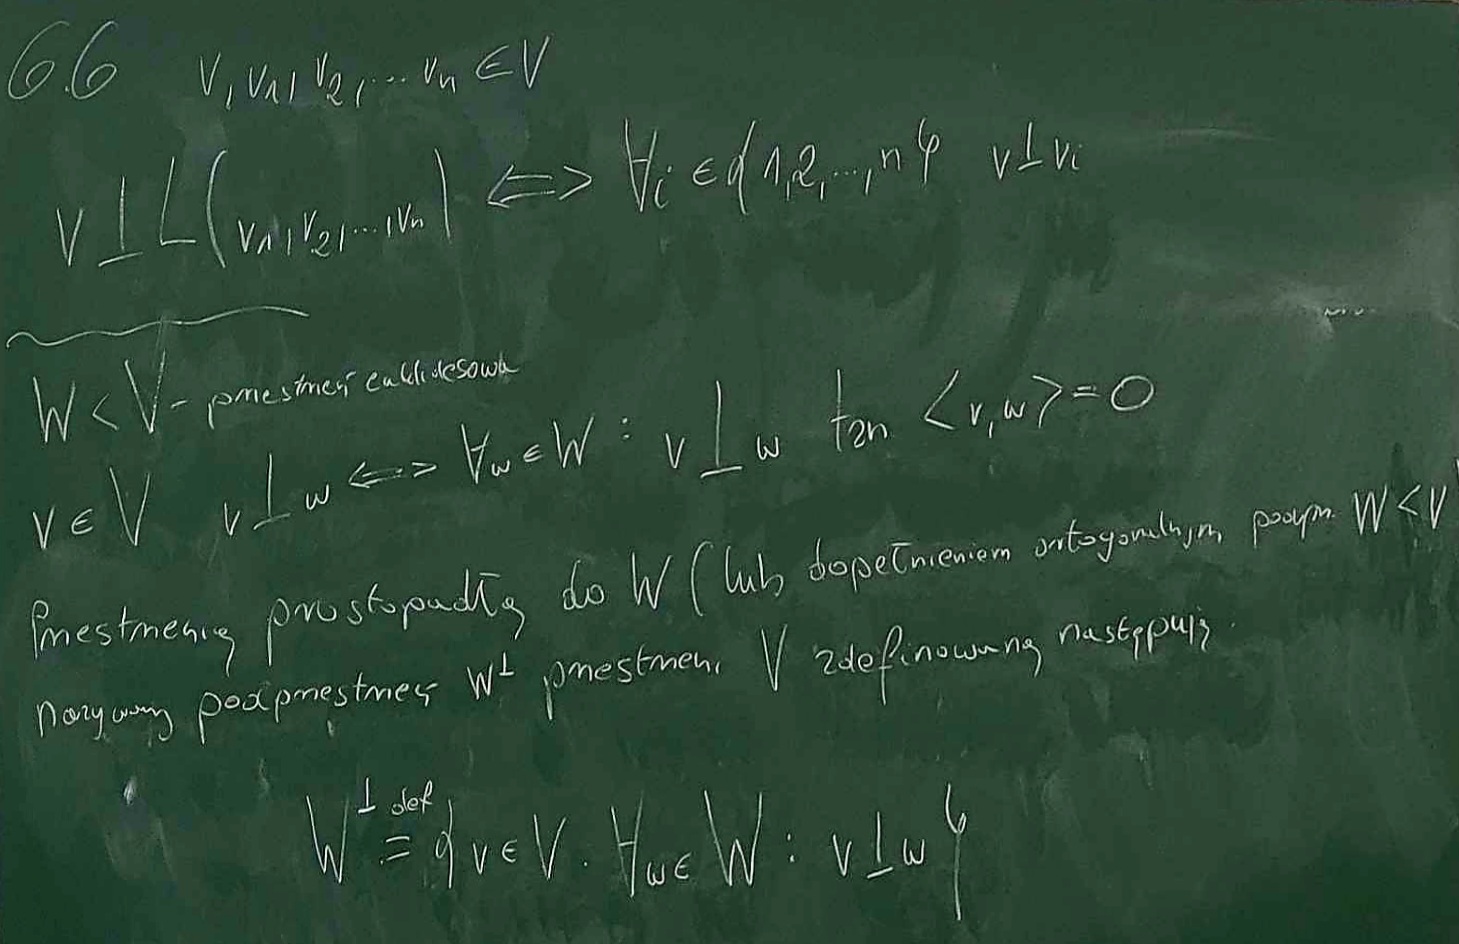 6.6 v, v₁, v₂, ... vₙ ∈ V
v ⊥ L(v₁, v₂, ..., vₙ) ⟺ ∀i ∈ {1,2,...,n} v ⊥ vᵢ
W < V - przestrzeń euklidesowa
v ∈ V v ⊥ w ⟺ ∀w ∈ W : v ⊥ w tzn <v, w> = 0
Przestrzenią prostopadłą do W (lub dopełnieniem ortogonalnym podprz. W < V
nazywamy podprzestrzeń W^⊥ przestrzeni V zdefinowaną następują.
W^⊥ def= {v ∈ V. ∀w ∈ W : v ⊥ w}